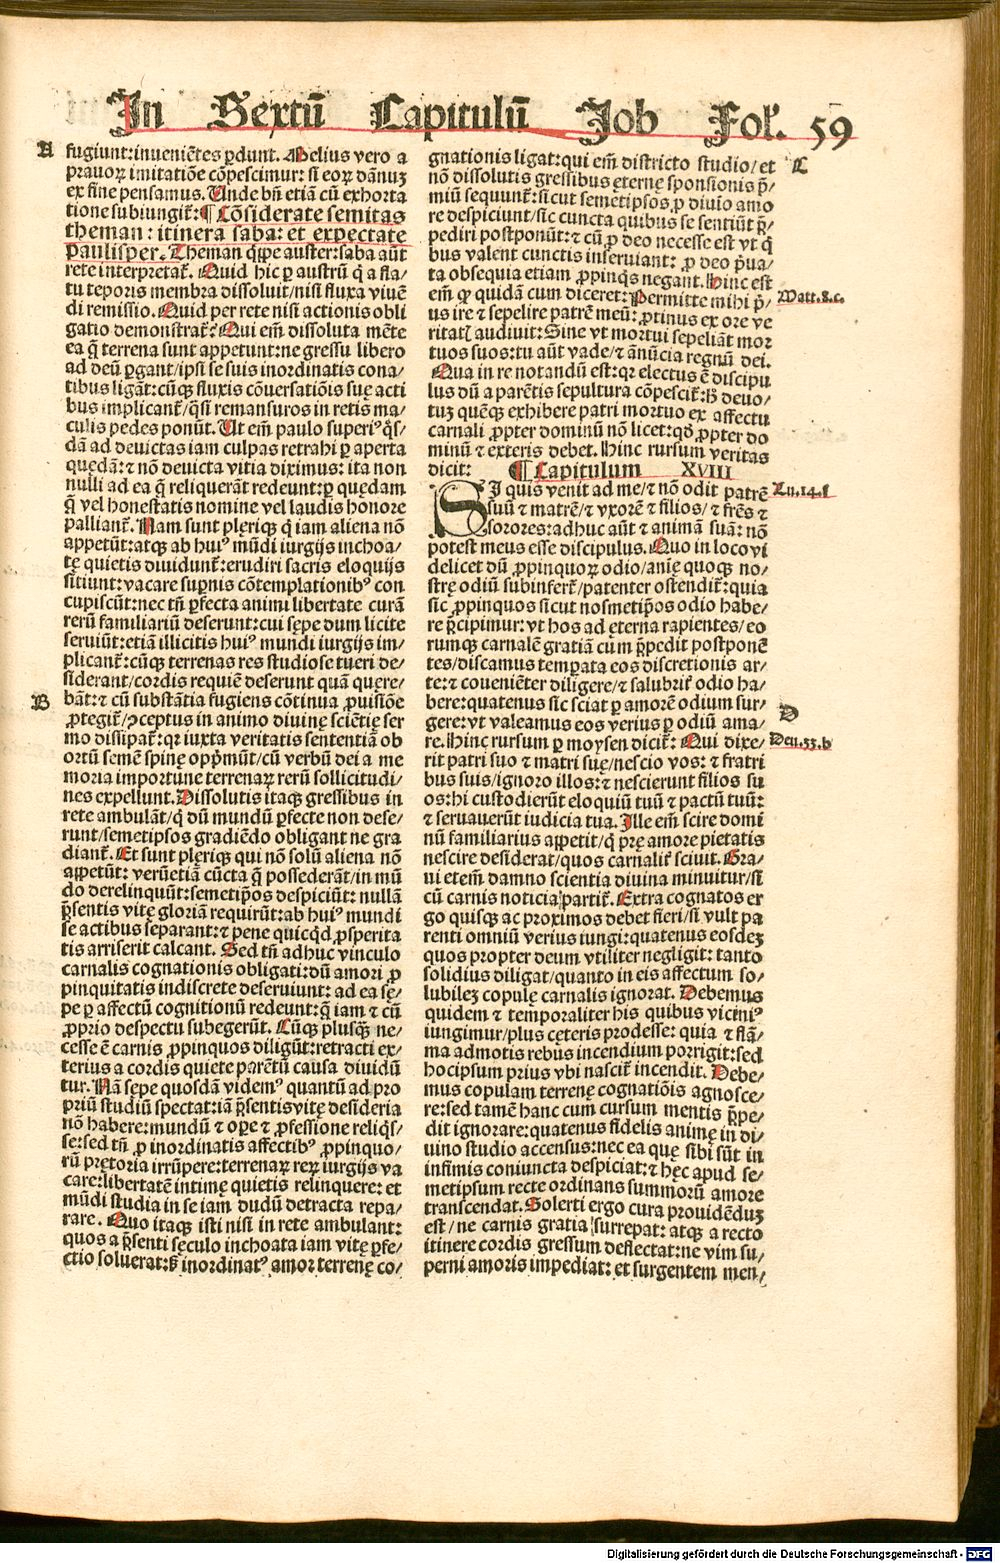 In Sextū Capitulū Job Fol. 59
A
fugiunt:inueniētes ꝑdunt. Melius vero a
prauoꝝ imitatiōe cōpescimur: si eoꝝ dānuꝫ
ex fine pensamus. Unde bn̄ etiā cū exhorta
tione subiungit᷑: ¶ Cōsiderate semitas
theman: itinera saba: et expectate
paulisper. Theman q̇ppe auster:saba aūt
rete interpretat᷑. Quid hic ꝑ austrū q̇ a fla/
tu teporis membra dissoluit/nisi fluxa viuē
di remissio. Quid per rete nisi actionis obli
gatio demonstrat᷑? Qui em̄ dissoluta mēte
ea q̄ terrena sunt appetunt:ne gressu libero
ad deū ꝑgant/ipsi se suis inordinatis cona/
tibus ligāt: cūqꝫ fluxis cōuersatiōis suę acti
bus implicant᷑/q̇si remansuros in retis ma/
culis pedes ponūt. Ut em̄ paulo superiꝰ q̇s/
dā ad deuictas iam culpas retrahi ꝑ aperta
quędā: ⁊ nō deuicta vitia diximus: ita non
nulli ad ea q̄ reliquerāt redeunt:ꝑ quędam
q̄ vel honestatis nomine vel laudis honore
palliant᷑. Nam sunt plęriqꝫ q̇ iam aliena nō
appetūt:atqꝫ ab huiꝰ mūdi iurgijs inchoa/
tę quietis diuidunt᷑:erudiri sacris eloquijs
sitiunt:vacare suꝑnis cōtemplationibꝰ con
cupiscūt:nec tn̄ ꝑfecta animi libertate curā
rerū familiariū deserunt:cui sępe dum licite
seruiūt:etiā illicitis huiꝰ mundi iurgijs im/
plicant᷑:cūqꝫ terrenas res studiose tueri de/
siderant/cordis requiē deserunt quā quęre/
B
bāt:⁊ cū substātia fugiens cōtinua ꝓuisiōe
ꝓtegit᷑/ꝯceptus in animo diuinę sciētię ser
mo dissipat᷑:qꝛ iuxta veritatis sententiā ob
ortū semē spinę opp̄mūt/cū verbū dei a me
moria importune terrenaꝝ rerū sollicitudi/
nes expellunt. Dissolutis itaqꝫ gressibus in
rete ambulāt/q̇ dū mundū ꝑfecte non dese/
runt/semetipsos gradiēdo obligant ne gra
diant᷑. Et sunt plęriqꝫ qui nō solū aliena nō
aꝓpetūt: verūetiā cūcta q̄ possederāt/in mū
do derelinquūt:semetip̄os despiciūt: nullā
p̄sentis vitę gloriā requirūt:ab huiꝰ mundi
se actibus separant:⁊ pene quicq̇d ꝓsperita
tis arriserit calcant. Sed tn̄ adhuc vinculo
carnalis cognationis obligati:dū amori ꝓ
pinquitatis indiscrete deseruiunt: ad ea sę/
pe ꝑ affectū cognitionū redeunt:q̄ iam ⁊ cū
ꝓprio despectu subegerūt. Cūqꝫ plusq̄ꝫ ne/
cesse ē carnis ꝓpinquos diligūt:retracti ex/
terius a cordis quiete parētū causa diuidū
tur. Nā sępe quosdā videmꝰ quantū ad pro
priū studiū spectat:iā p̄sentis vitę desideria
nō habere:mundū ⁊ oꝑe ⁊ ꝓfessione reliq̇s/
se:sed tn̄ ꝓ inordinatis affectibꝰ ꝓpinquo/
rū pretoria irrūpere:terrenaꝝ reꝝ iurgijs va
care:libertatē intimę quietis relinquere: et
mūdi studia in se iam dudū detracta repa/
rare. Quo itaqꝫ isti nisi in rete ambulant:
quos a p̄senti sęculo inchoata iam vitę ꝑfe/
ctio soluerat:sꝫ inordinatꝰ amor terrenę co/
C
gnationis ligat:qui em̄ districto studio/et
nō dissolutis gressibus ęternę sponsionis p̄/
miū sequunt᷑:sicut semetipsos ꝓ diuio amo
re despiciunt/sic cuncta quibus se sentiūt p̄/
pediri postponūt:⁊ cū ꝓ deo necesse est vt q̇
bus valent cunctis inseruiant: ꝓ deo p̄ua/
ta obsequia etiam ꝓpinq̇s negant. Hinc est
em̄ ꝙ quidā cum diceret: Permitte mihi p̄/
Matt.8.c.
us ire ⁊ sepelire patrē meū: ꝓtinus ex ore ve
ritatꝭ audiuit: Sine vt mortui sepeliāt mor
tuos suos:tu aūt vade/⁊ ānūcia regnū dei.
Qua in re notandū est:qꝛ electus ē discipu
lus dū a parētis sepultura cōpescit᷑:ꝙ deuo/
tuꝫ quēqꝫ exhibere patri mortuo ex affectu
carnali ꝓpter dominū nō licet:qđ ꝓpter do
minū ⁊ exteris debet. Hinc rursum veritas
dicit: ¶ Capitulum XVIII
SI quis venit ad me/⁊ nō odit patrē
Lu.14.f
suū ⁊ matrē/⁊ vxorē ⁊ filios/ ⁊ frēs ⁊
sorores:adhuc aūt ⁊ animā suā: nō
potest meus esse discipulus. Quo in loco vi
delicet dū ꝓpinquoꝝ odio/anię quoqꝫ no/
strę odiū subinfert᷑/patenter ostendit᷑:quia
sic ꝓpinquos sicut nosmetip̄os odio habe/
re p̄cipimur:vt hos ad ęterna rapientes/eo
rumqꝫ carnalē gratiā cum p̄pedit postponē
tes/discamus temꝑata eos discretionis ar/
te:⁊ coueniēter diligere/⁊ salubrit᷑ odio ha/
bere:quatenus sic sciat ꝑ amorē odium sur/
D
gere:vt valeamus eos verius ꝑ odiū ama/
re. Hinc rursum ꝑ moysen dicit᷑: Qui dixe/
Deu.33.b
rit patri suo ⁊ matri suę/nescio vos: ⁊ fratri
bus suis/ignoro illos:⁊ nescierunt filios su
os:hi custodierūt eloquiū tuū ⁊ pactū tuū:
⁊ seruauerūt iudicia tua. Ille em̄ scire domi
nū familiarius aꝓpetit/q̇ prę amore pietatis
nescire desiderat/quos carnalit᷑ sciuit. Gra/
ui etem̄ damno scientia diuina minuitur/si
cū carnis noticia partit᷑. Extra cognatos er
go quisqꝫ ac proximos debet fieri/si vult pa
renti omniū verius iungi:quatenus eosdeꝫ
quos propter deum vtiliter negligit: tanto
solidius diligat/quanto in eis affectum so/
lubileꝫ copulę carnalis ignorat. Debemus
quidem ⁊ temporaliter his quibus viciniꝰ
iungimur/plus cęteris prodesse: quia ⁊ flā/
ma admotis rebus incendium porrigit:sed
hocipsum prius vbi nascit᷑ incendit. Debe/
mus copulam terrenę cognatiōis agnosce/
re:sed tamē hanc cum cursum mentis p̄pe/
dit ignorare:quatenus fidelis animę in di/
uino studio accensus:nec ea quę sibi sūt in
infimis coniuncta despiciat:⁊ hęc apud se/
metipsum recte ordinans summorū amore
transcendat. Solerti ergo cura prouidēduꝫ
est/ne carnis gratia surrepat: atqꝫ a recto
itinere cordis gressum deflectat:ne vim su/
perni amoris impediat: et surgentem men/
Digitalisierung gefördert durch die Deutsche Forschungsgemeinschaft - DFG